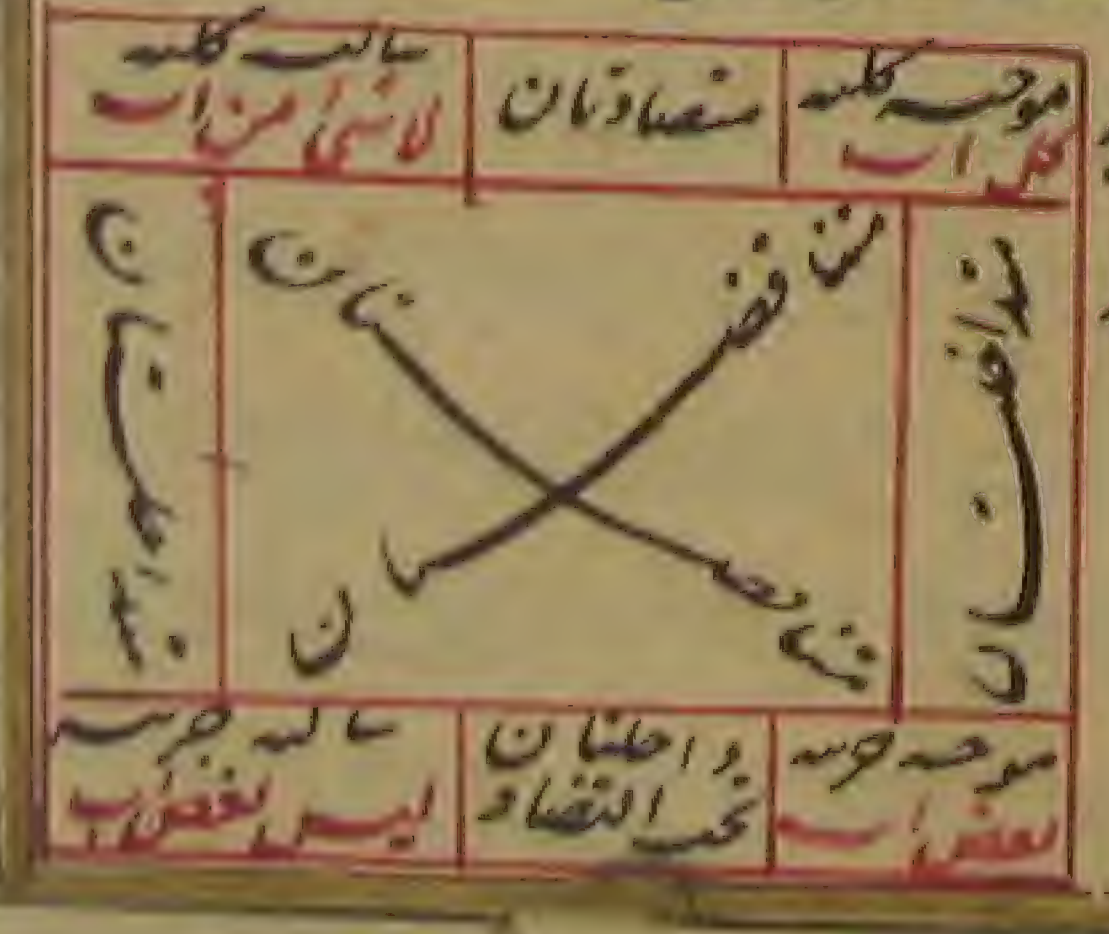 موجبه كليه
كل ا ب
متضادتان
سالبه كليه
لا شئ من ا ب
متداخلتان
متناقضتان
متناقضتان
متداخلتان
موجبه جزييه
بعض ا ب
داخلتان
تحت التضاد
سالبه جزييه
ليس بعض ا ب